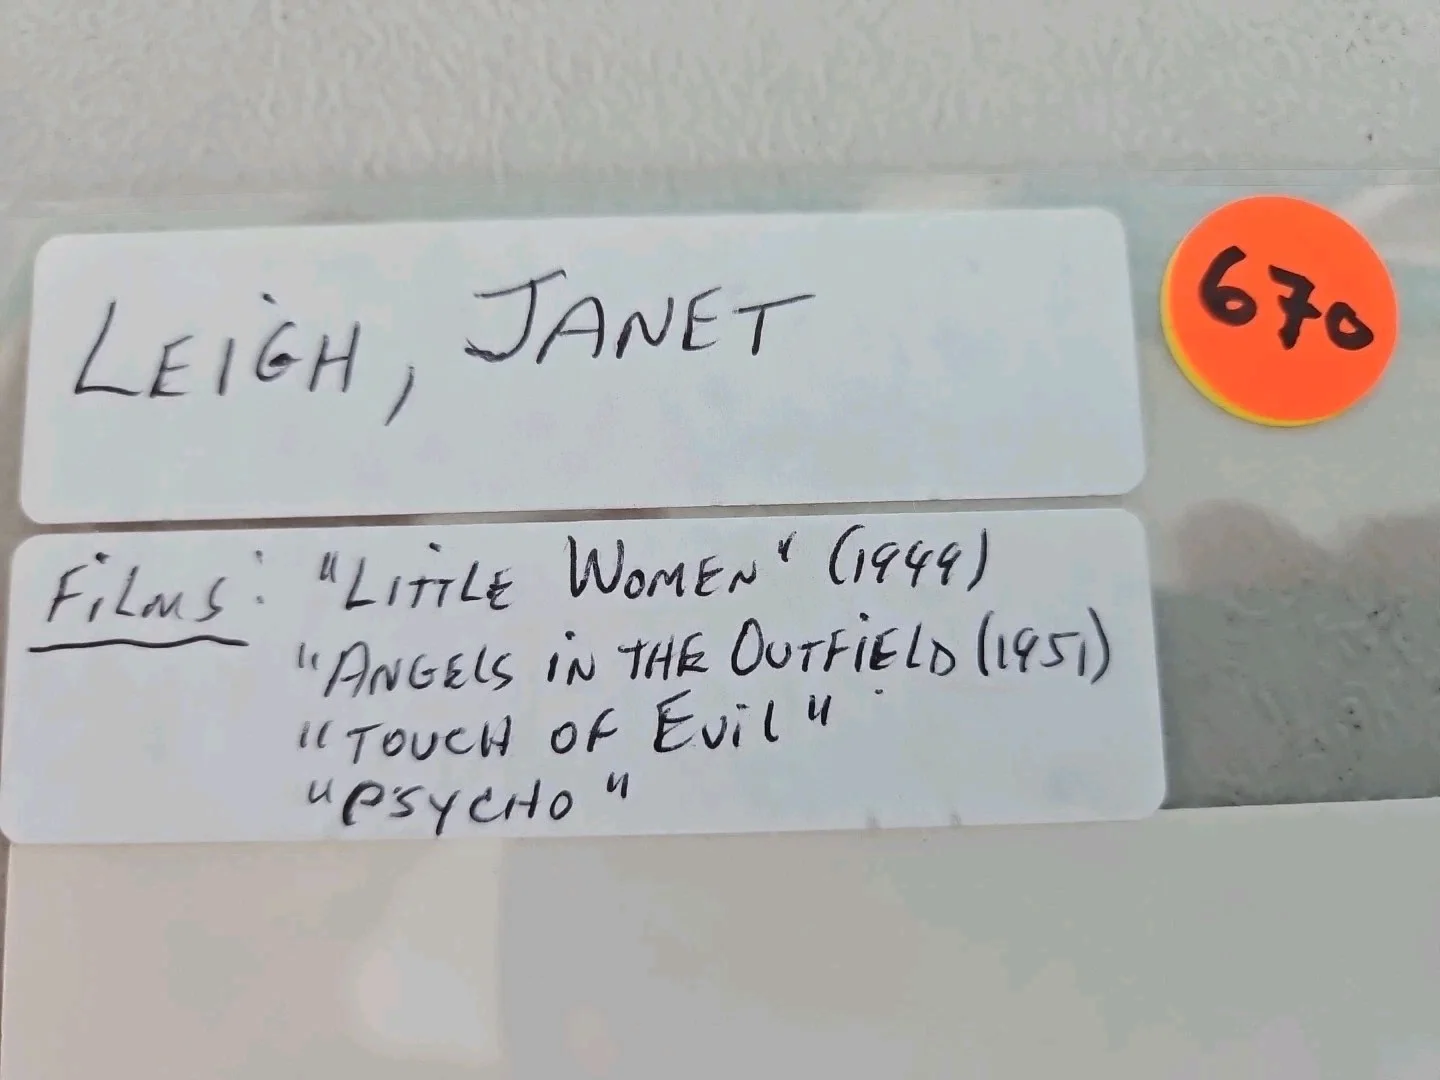 LEIGH, JANET
670
FiLMS: "LITTLE WOMEN" (1949)
"ANGELS iN THE OUTFiELD (1951)
"TOUCH OF EViL"
"PSYCHO"